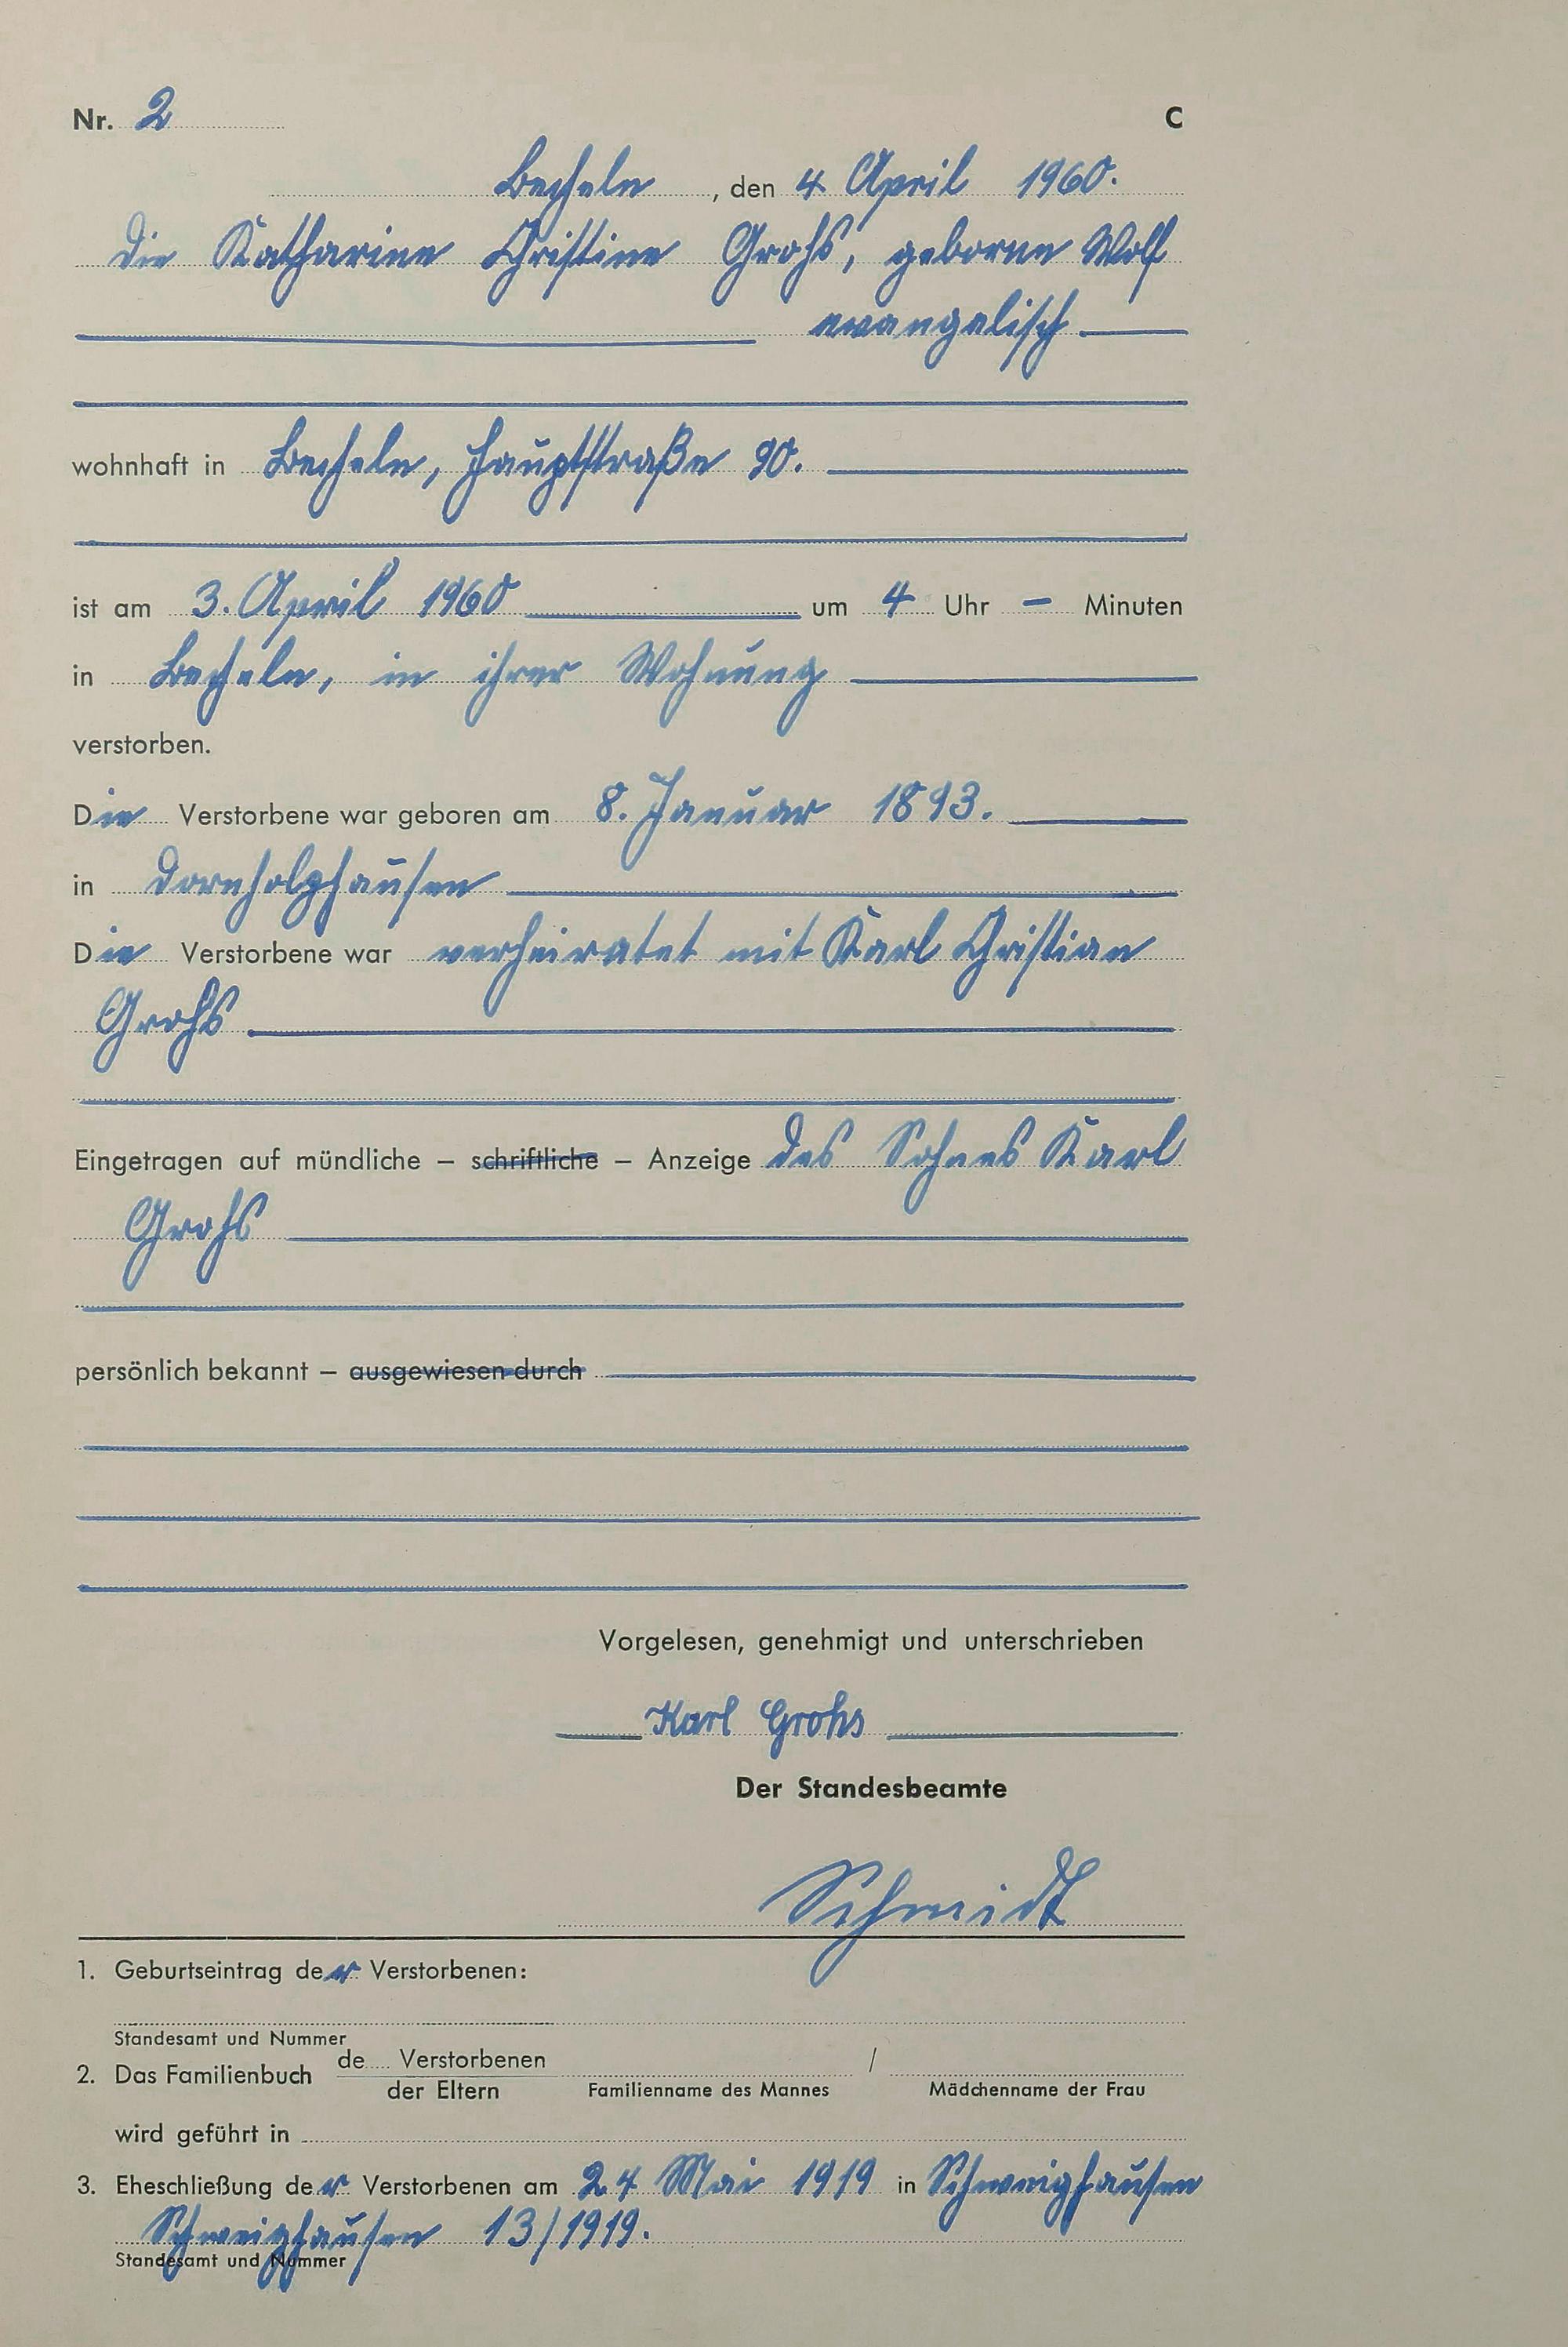 Nr. 2 C
Becheln, den 4 April 1960.
Die Katharine Christine Grohs, geborne Wolf
evangelisch
wohnhaft in Becheln, Hauptstraße 90.
ist am 3. April 1960 um 4 Uhr – Minuten
in Becheln, in ihrer Wohnung
verstorben.
Die Verstorbene war geboren am 8. Januar 1893.
in Dornholzhausen
Die Verstorbene war verheiratet mit Karl Christian
Grohs
Eingetragen auf mündliche – schriftliche – Anzeige des Sohnes Karl
Grohs
persönlich bekannt – ausgewiesen durch
Vorgelesen, genehmigt und unterschrieben
Karl Grohs
Der Standesbeamte
Schmidt
1. Geburtseintrag der Verstorbenen:
Standesamt und Nummer
2. Das Familienbuch de Verstorbenen /
der Eltern Familienname des Mannes Mädchenname der Frau
wird geführt in
3. Eheschließung der Verstorbenen am 24 Mai 1919 in Schweighausen
Schweighausen 13/1919.
Standesamt und Nummer